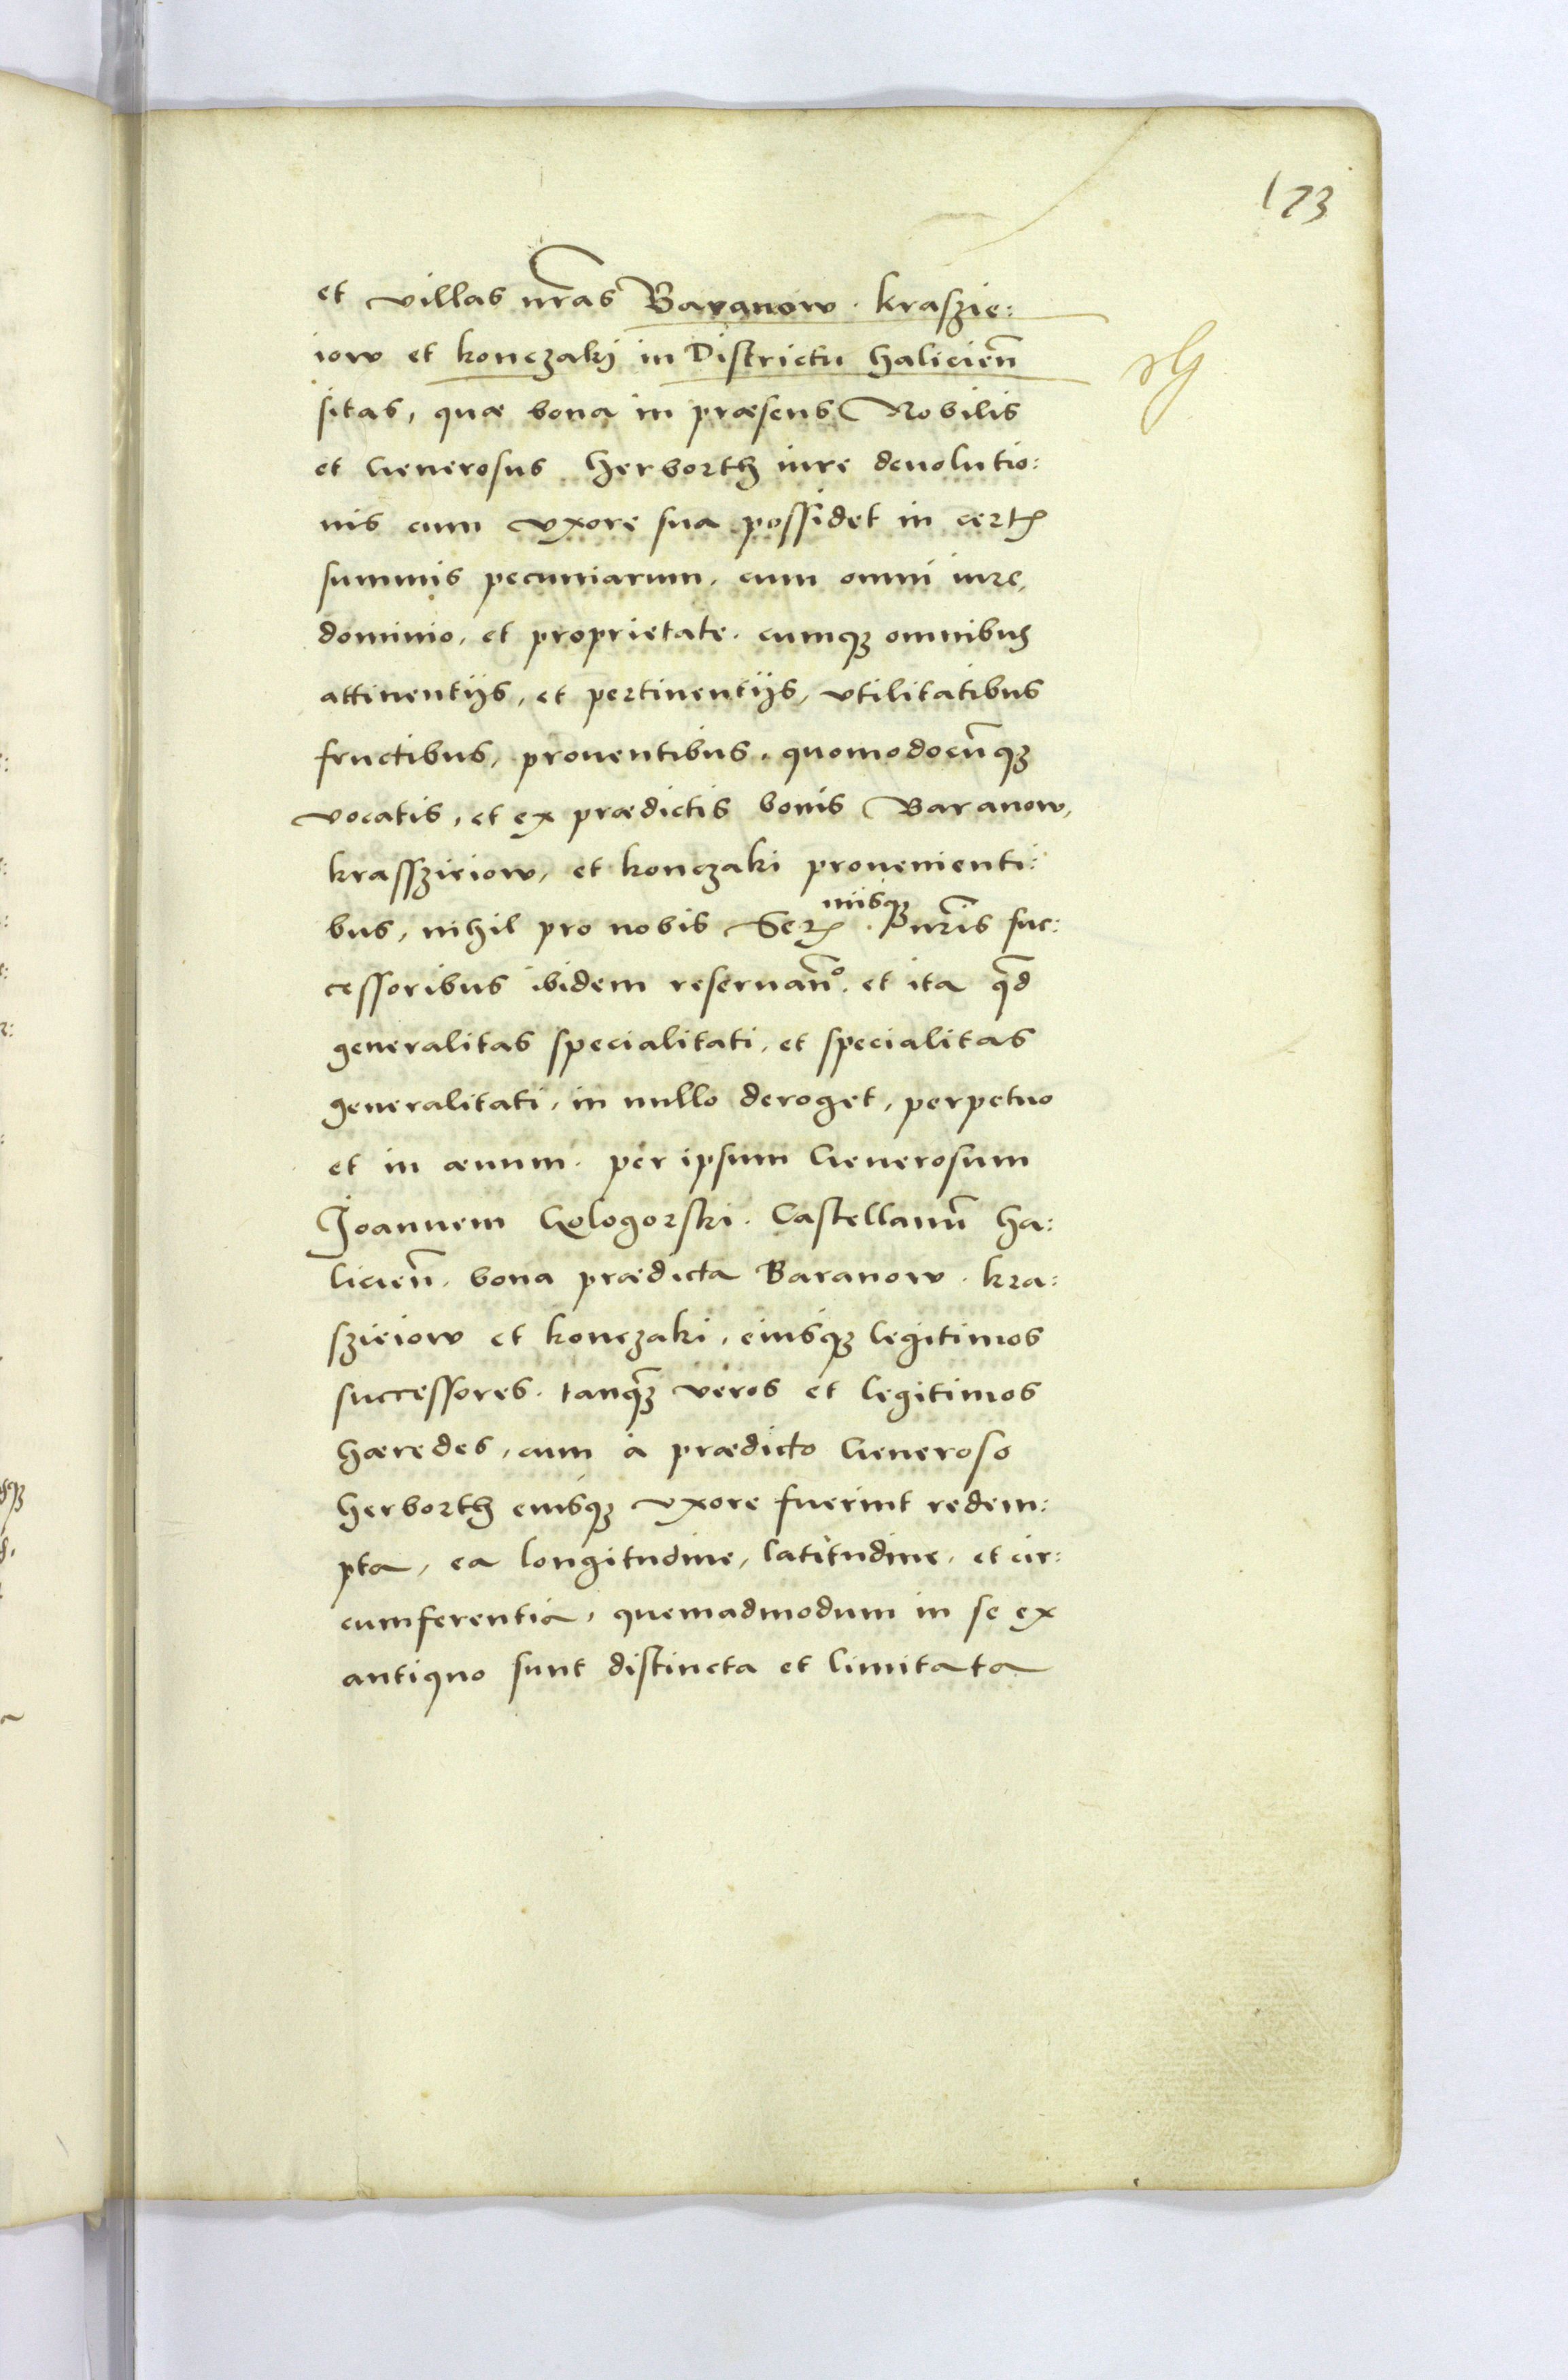 173
et villas nr̃as Baranow. kraszie:
iow et konczaki in Districtu halicieñ
sitas, quæ bona in præsens Nobilis
et Generosus herborth iure deuolutio:
nis cum vxore sua possidet in certꝭ
summis pecuniarum. cum omni iure,
dominio, et proprietate. cumqꝫ omnibus
attinentijs, et pertinentijs, vtilitatibus
fructibus, prouentibus, quomodocũqꝫ
vocatis, et ex prædictis bonis Baranow,
krasszieiow, et konczaki prouenienti:
bus, nihil pro nobis Serꝭ nr̃is suc:
nijsqꝫ
cessoribus ibidem reseruañ°. et ita qđ
generalitas specialitati, et specialitas
generalitati, in nullo deroget, perpetuo
et in æuum. per ipsum Generosum
Joannem Gologorski. Castellanũ ha:
licieñ. bona prædicta Baranow. kra:
szieiow et konczaki, eiusqꝫ legitimos
successores. tanqꝫ veros et legitimos
hæredes, cum à prædicto Generoso
herborth eiusqꝫ vxore fuerint redem:
pta, ea longitudine, latitudine, et cir:
cumferentia, quemadmodum in se ex
antiquo sunt distincta et limitata